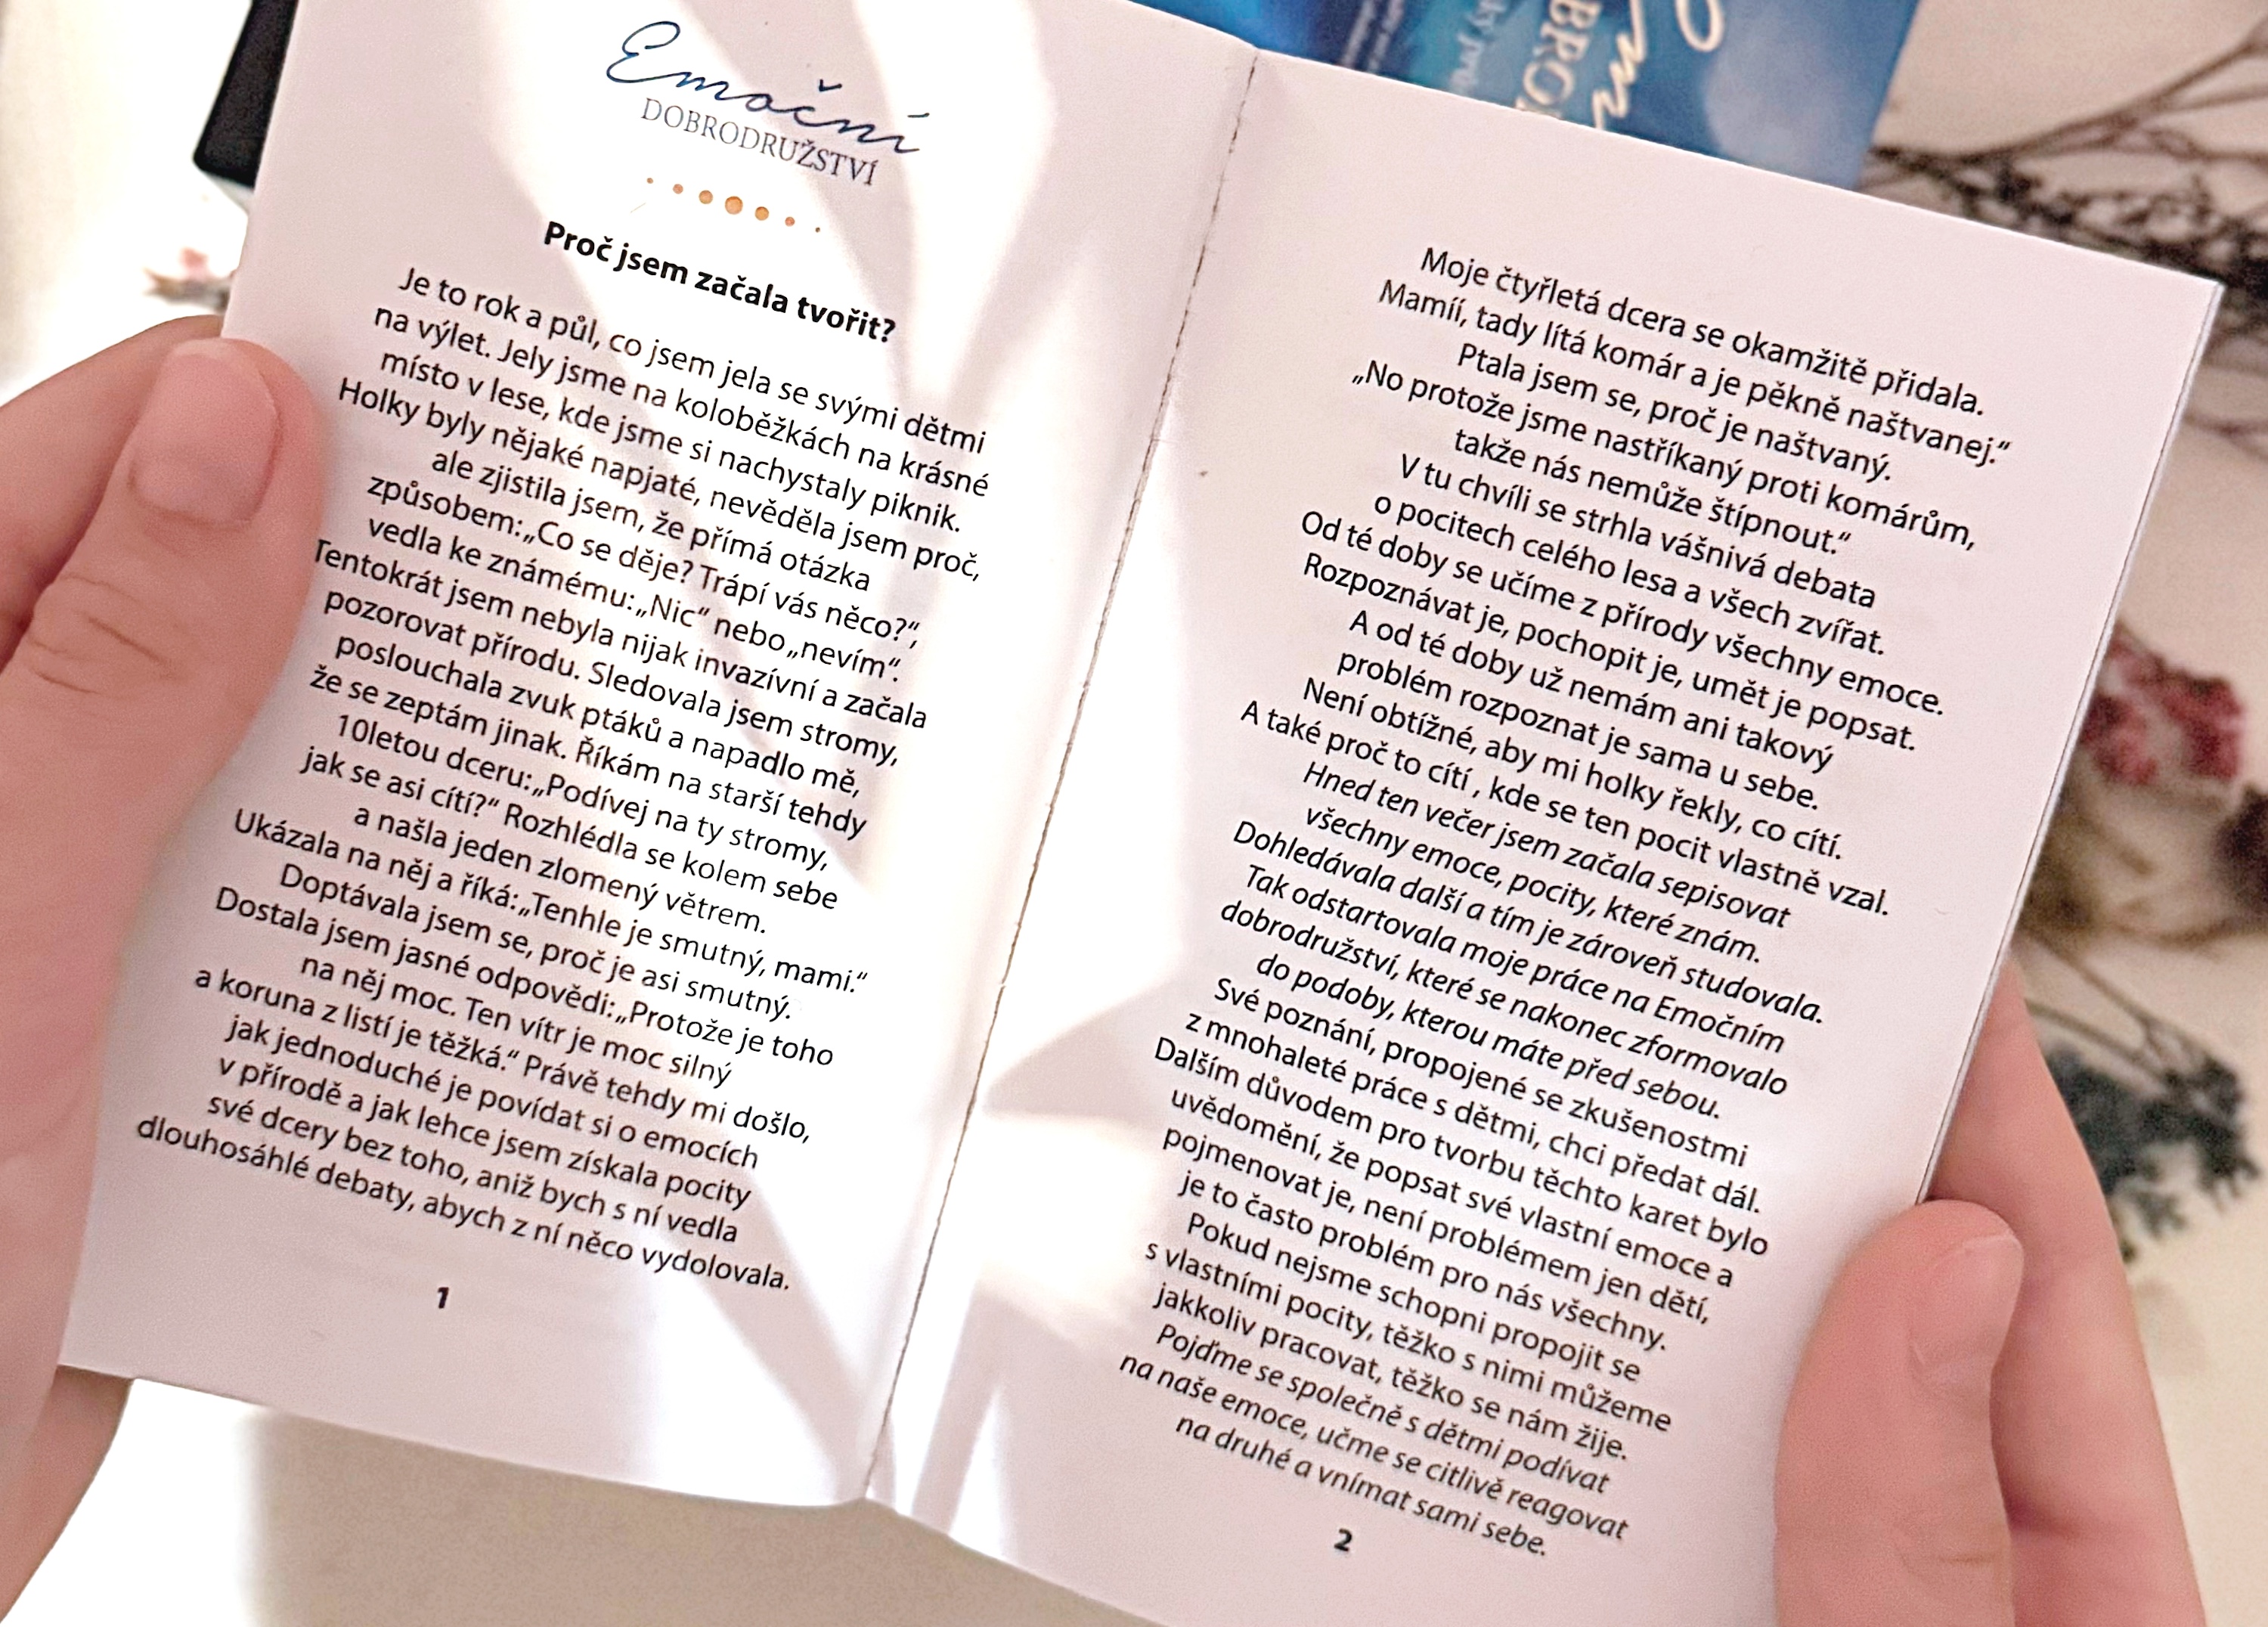 Emoční
DOBRODRUŽSTVÍ
Proč jsem začala tvořit?
Je to rok a půl, co jsem jela se svými dětmi
na výlet. Jely jsme na koloběžkách na krásné
místo v lese, kde jsme si nachystaly piknik.
Holky byly nějaké napjaté, nevěděla jsem proč,
ale zjistila jsem, že přímá otázka
způsobem:„Co se děje? Trápí vás něco?“,
vedla ke známému:„Nic“ nebo„nevím“.
Tentokrát jsem nebyla nijak invazívní a začala
pozorovat přírodu. Sledovala jsem stromy,
poslouchala zvuk ptáků a napadlo mě,
že se zeptám jinak. Říkám na starší tehdy
10letou dceru:„Podívej na ty stromy,
jak se asi cítí?“ Rozhlédla se kolem sebe
a našla jeden zlomený větrem.
Ukázala na něj a říká:„Tenhle je smutný, mami.“
Doptávala jsem se, proč je asi smutný.
Dostala jsem jasné odpovědi:„Protože je toho
na něj moc. Ten vítr je moc silný
a koruna z listí je těžká.“ Právě tehdy mi došlo,
jak jednoduché je povídat si o emocích
v přírodě a jak lehce jsem získala pocity
své dcery bez toho, aniž bych s ní vedla
dlouhosáhlé debaty, abych z ní něco vydolovala.
1
Moje čtyřletá dcera se okamžitě přidala.
Mamíí, tady lítá komár a je pěkně naštvanej.“
Ptala jsem se, proč je naštvaný.
„No protože jsme nastříkaný proti komárům,
takže nás nemůže štípnout.“
V tu chvíli se strhla vášnivá debata
o pocitech celého lesa a všech zvířat.
Od té doby se učíme z přírody všechny emoce.
Rozpoznávat je, pochopit je, umět je popsat.
A od té doby už nemám ani takový
problém rozpoznat je sama u sebe.
Není obtížné, aby mi holky řekly, co cítí.
A také proč to cítí , kde se ten pocit vlastně vzal.
Hned ten večer jsem začala sepisovat
všechny emoce, pocity, které znám.
Dohledávala další a tím je zároveň studovala.
Tak odstartovala moje práce na Emočním
dobrodružství, které se nakonec zformovalo
do podoby, kterou máte před sebou.
Své poznání, propojené se zkušenostmi
z mnohaleté práce s dětmi, chci předat dál.
Dalším důvodem pro tvorbu těchto karet bylo
uvědomění, že popsat své vlastní emoce a
pojmenovat je, není problémem jen dětí,
je to často problém pro nás všechny.
Pokud nejsme schopni propojit se
s vlastními pocity, těžko s nimi můžeme
jakkoliv pracovat, těžko se nám žije.
Pojďme se společně s dětmi podívat
na naše emoce, učme se citlivě reagovat
na druhé a vnímat sami sebe.
2